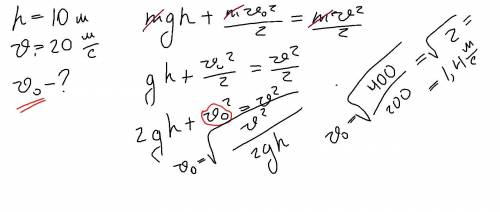 h = 10 м
v = 20 м/с
v₀ - ?
mgh + mv₀²/2 = mv²/2
gh + v₀²/2 = v²/2
2gh + v₀² = v²
v₀ = √(v²/2gh)
v₀ = √(400/200) = √2 =
= 1,4 м/с